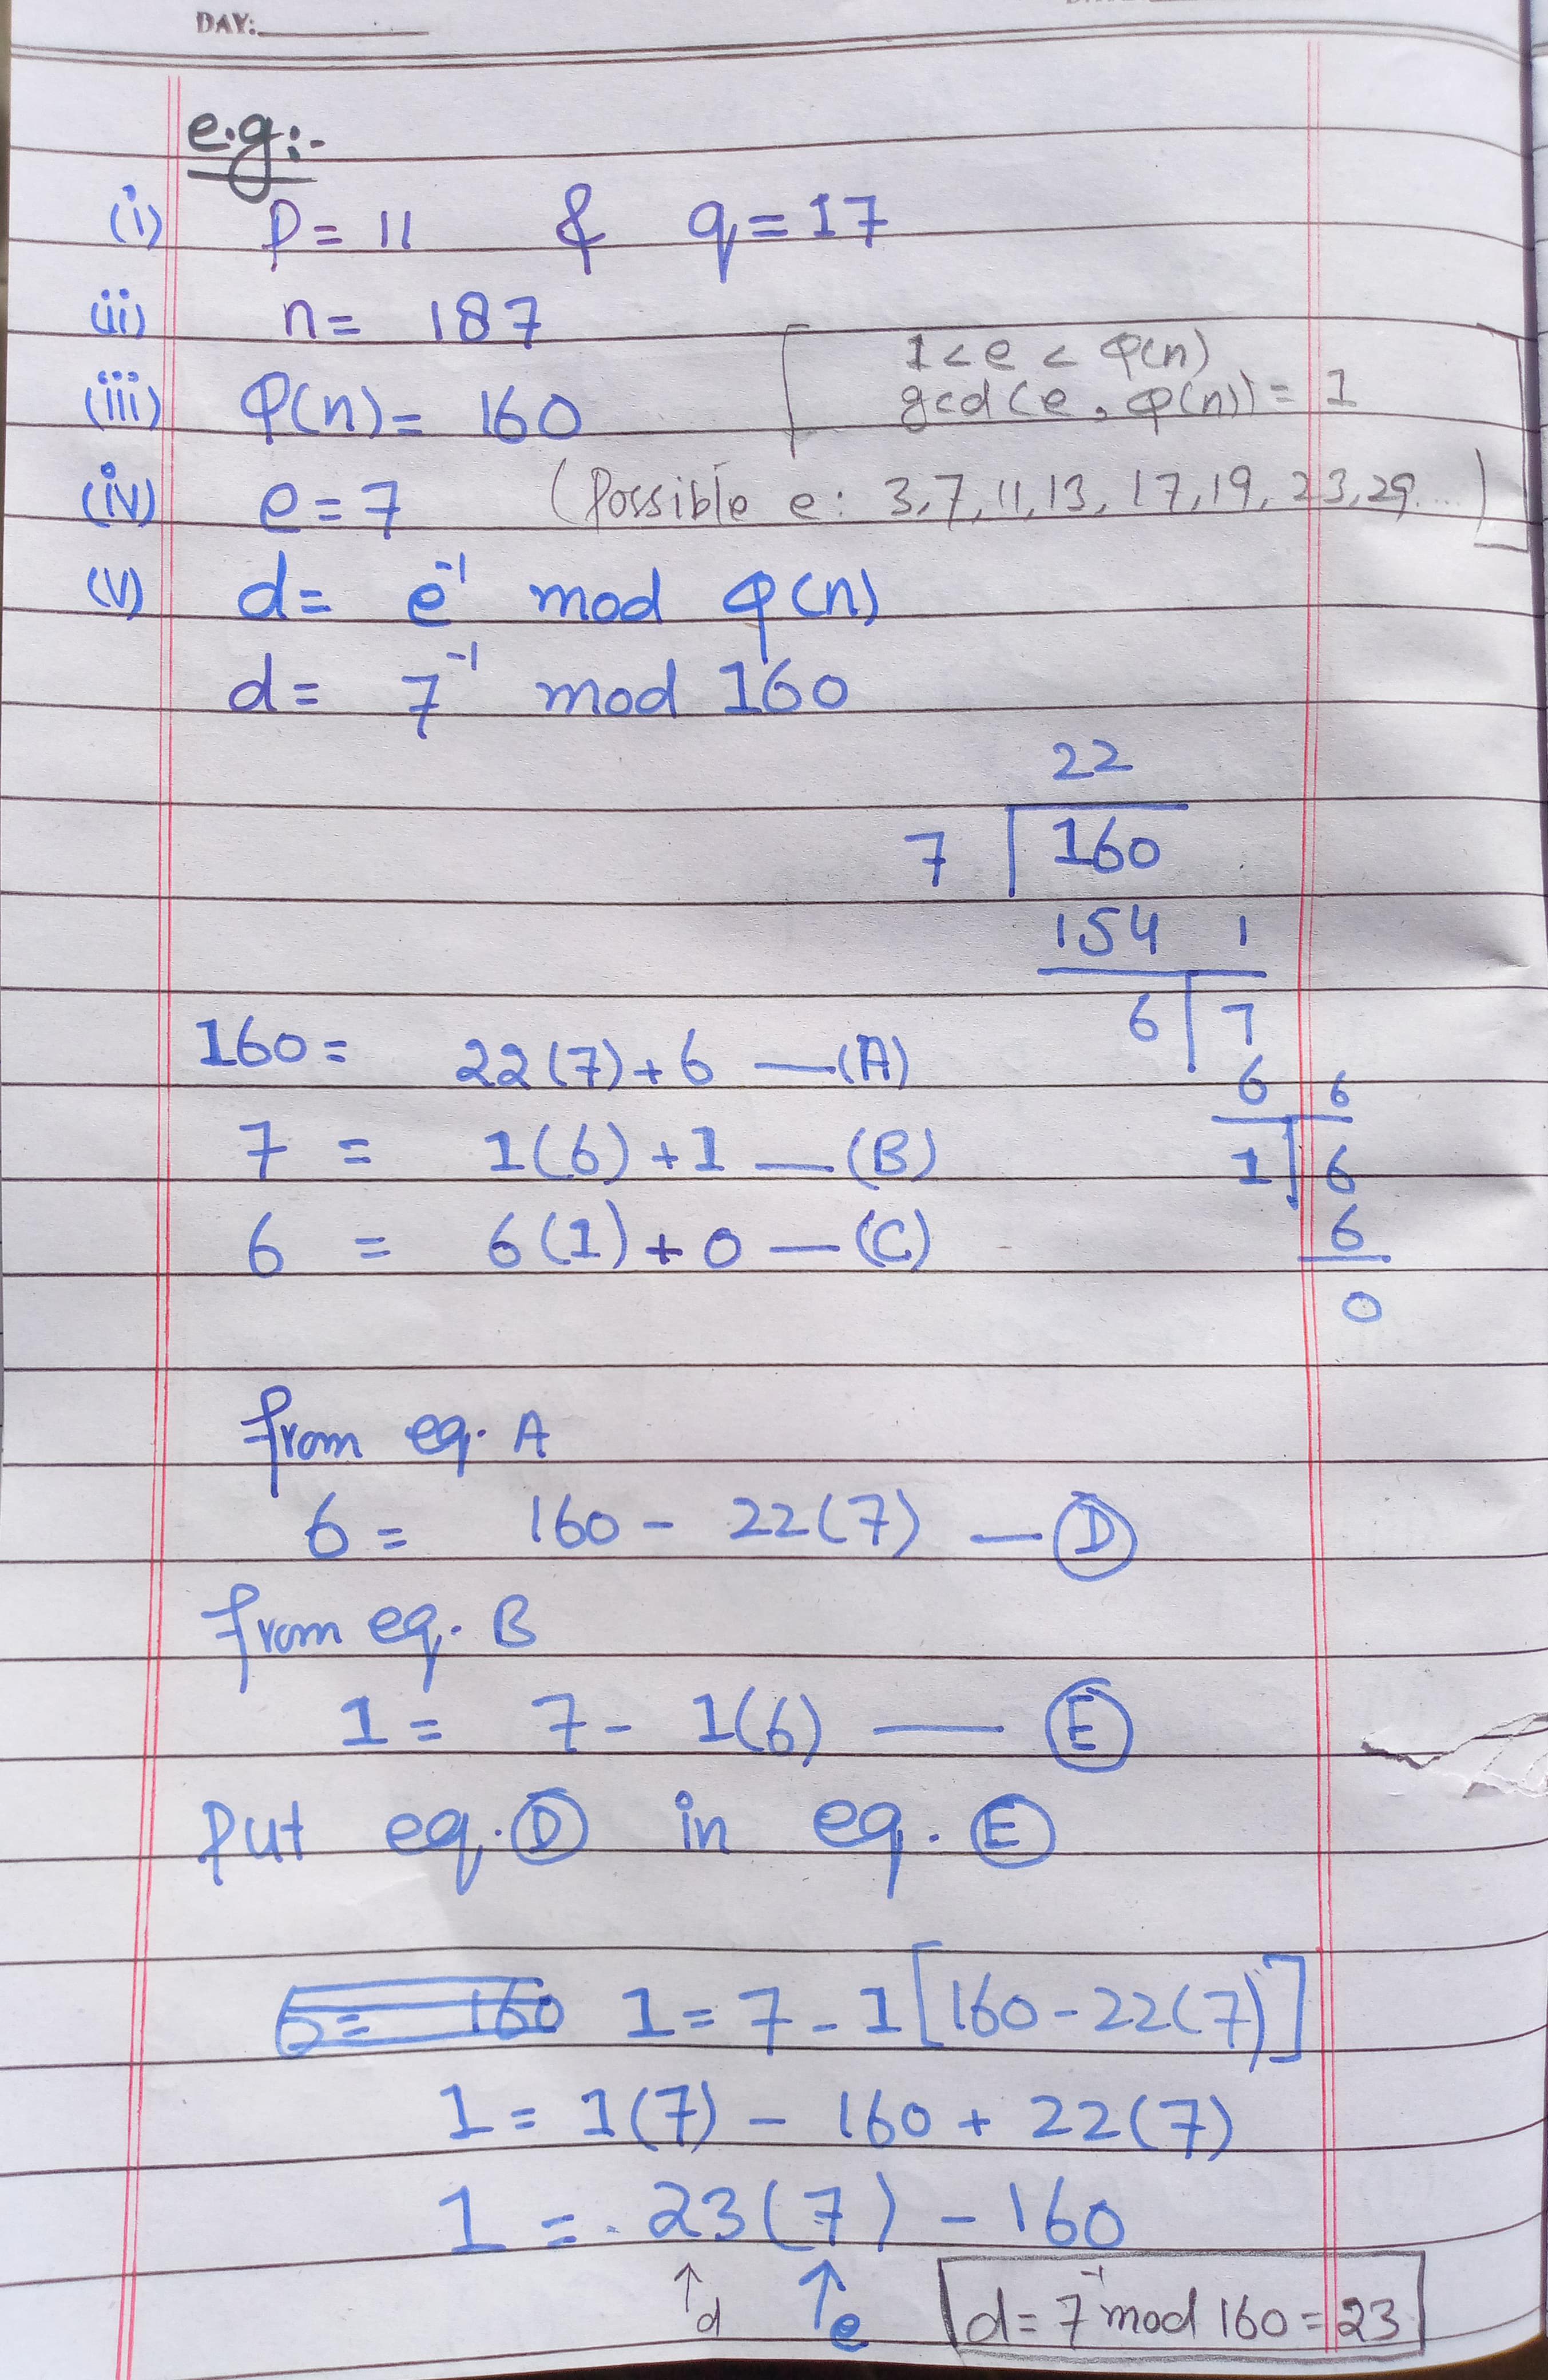 DAY:
e.g:-
(i) P = 11 & q = 17
(ii) n = 187
1 < e < φ(n)
(iii) φ(n) = 160
gcd(e, φ(n)) = 1
(iv) e = 7 (Possible e: 3, 7, 11, 13, 17, 19, 23, 29...)
(v) d = e⁻¹ mod φ(n)
d = 7⁻¹ mod 160
22
7 | 160
154 1
6 | 7
160 = 22(7) + 6 — (A)
6 6
7 = 1(6) + 1 — (B)
1 | 6
6 = 6(1) + 0 — (C)
6
0
from eq. A
6 = 160 - 22(7) — D
from eq. B
1 = 7 - 1(6) — E
Put eq. D in eq. E
6 = 160 1 = 7 - 1[160 - 22(7)]
1 = 1(7) - 160 + 22(7)
1 = 23(7) - 160
↑d ↑e d = 7⁻¹ mod 160 = 23